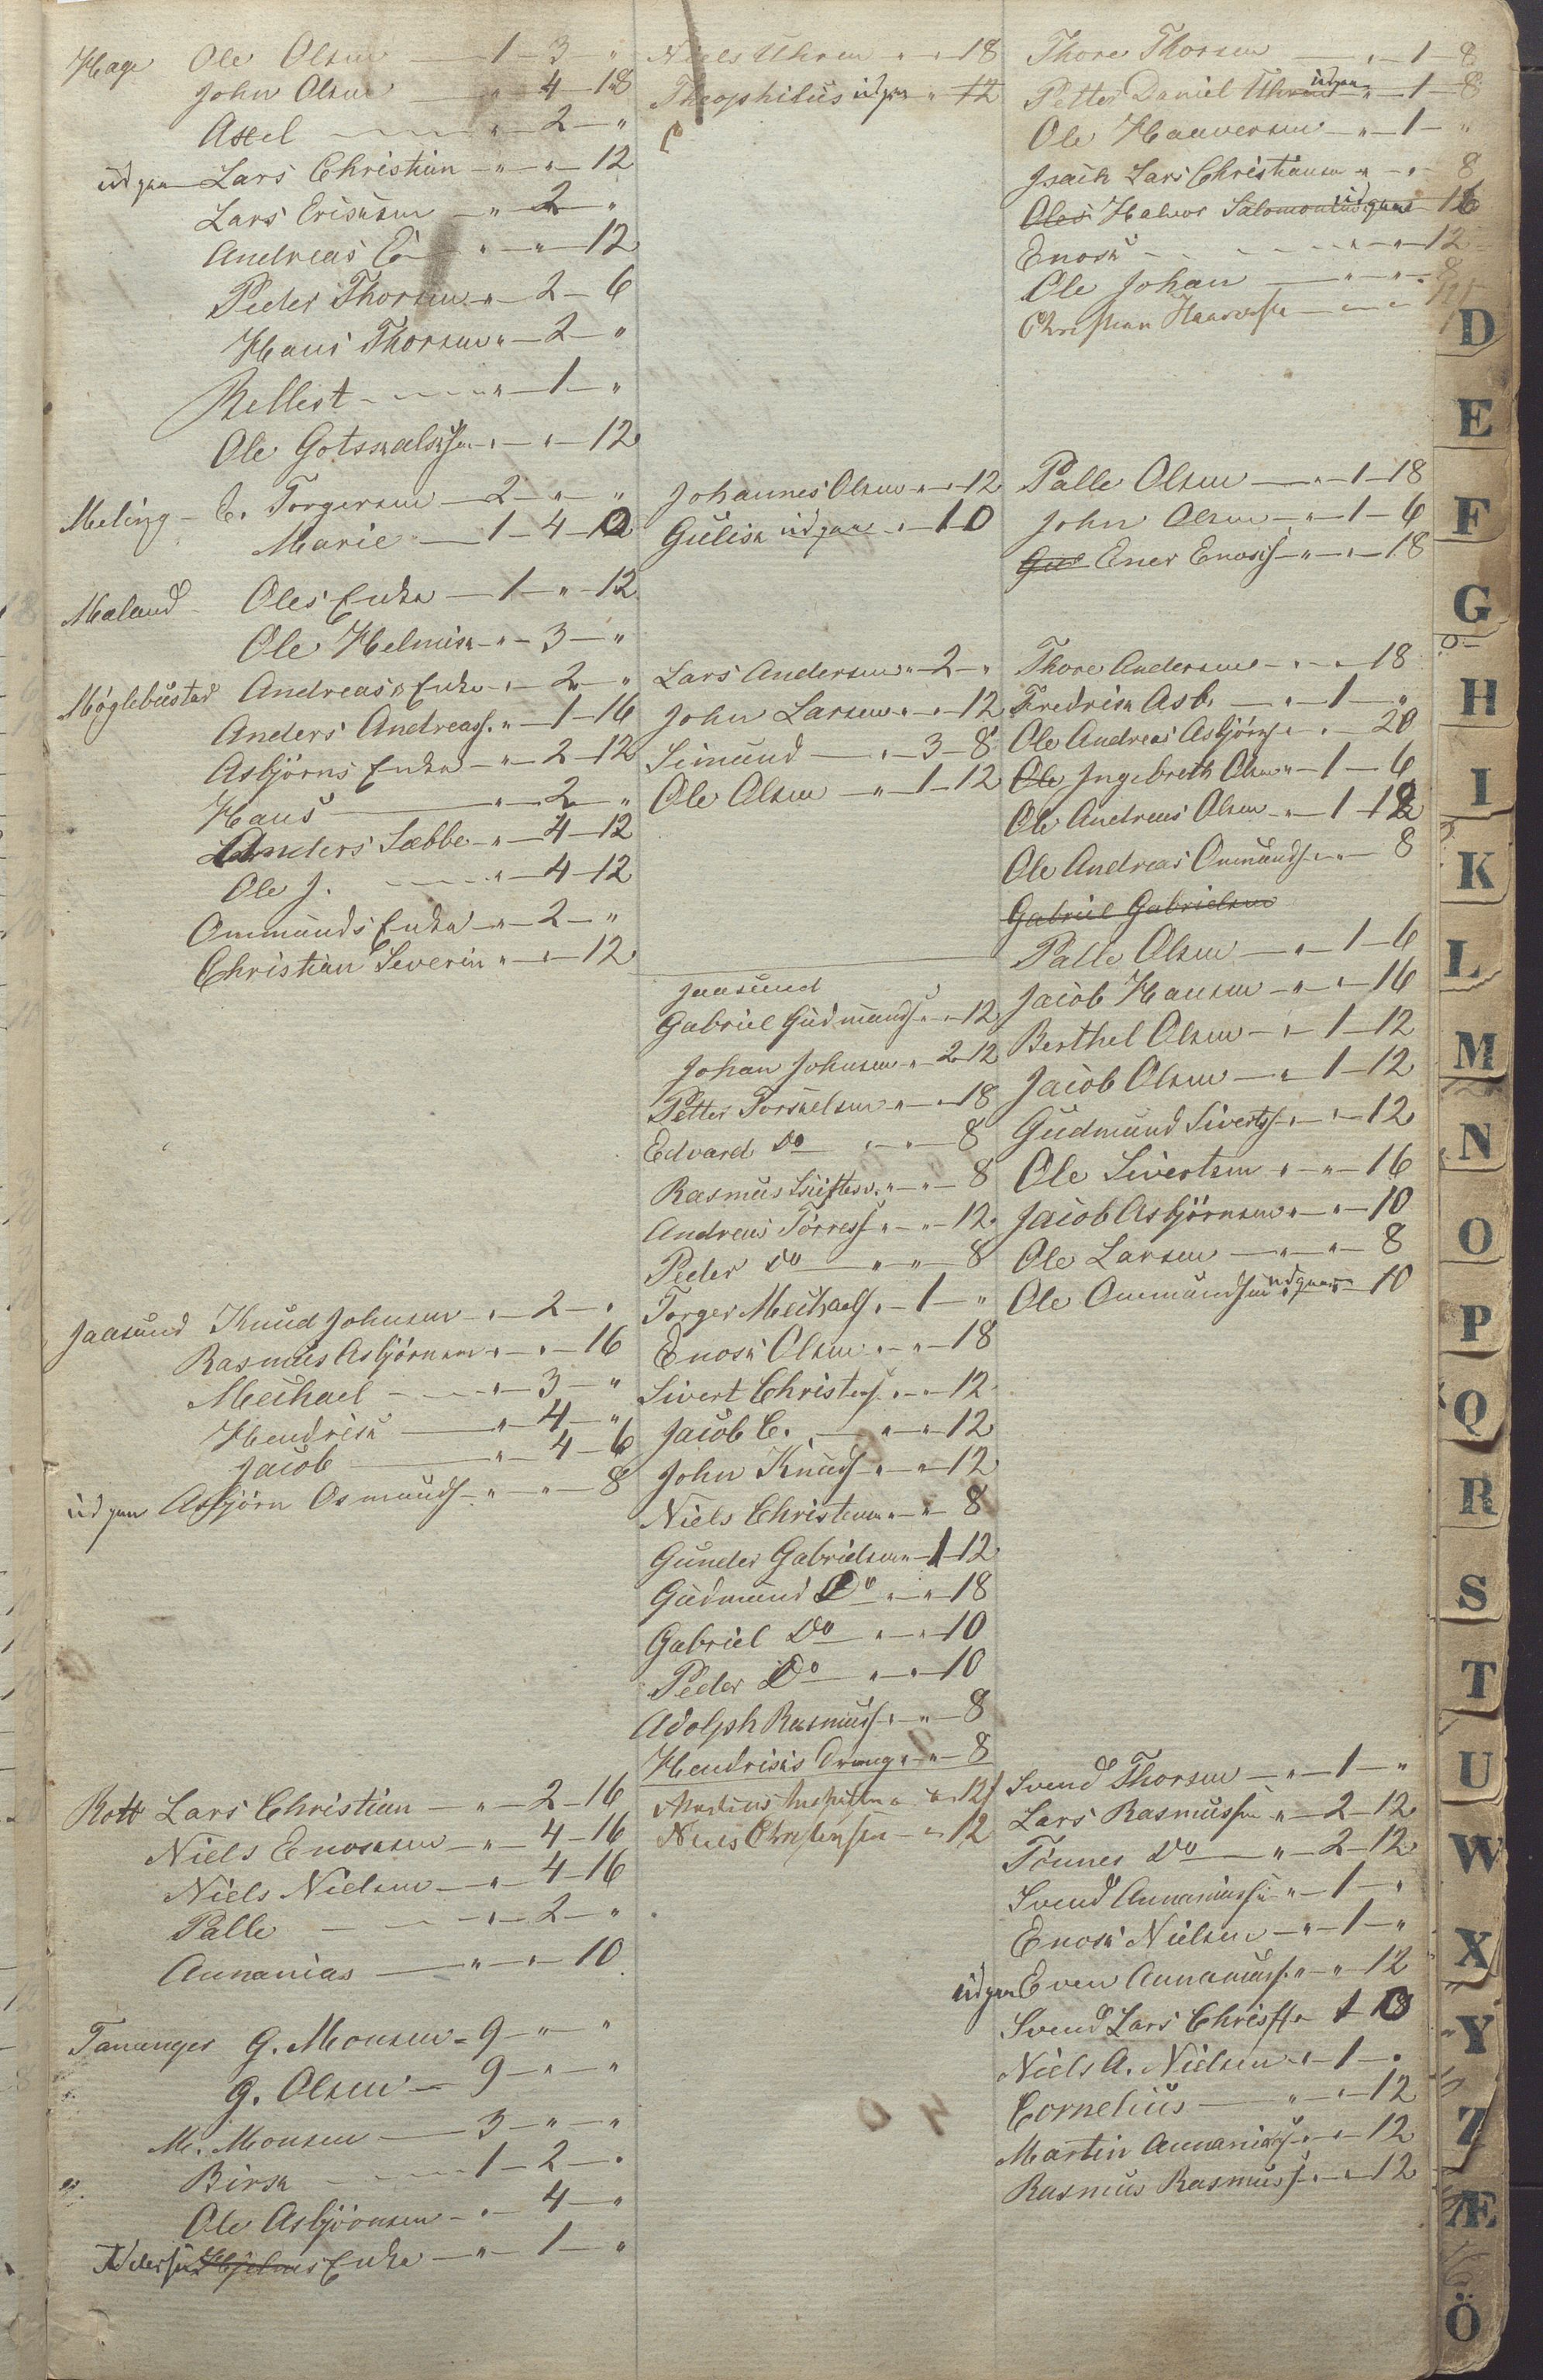 Hage Ole Olsen — 1 — 3 — "
John Olsen — " — 4 — 18
Axel — " — 2 — "
udgaar Lars Christian — " — " — 12
Lars Ericksen — " — 2 — "
Andreas E — " — " — 12
Peder Thorsen — " — 2 — 6
Hans Thorsen — " — 2 — "
Rellest — " — 1 — "
Ole Gotskalks — " — " — 12
Meling — E. Torgersen — 2 — " — "
Marie — 1 — 4 — 12
Meland — Oles Enke — 1 — " — 12
Ole Helmik — " — 3 — "
Møglebustad Andreas's Enke — " — 2 — "
Anders Andreass. " — 1 — 16
Asbjörns Enke — " — 2 — 12
Hans — " — 2 — "
Anders Sæbbe — " — 4 — 12
Ole J. — " — 4 — 12
Ommunds Enke — " — 2 — "
Christian Severin " — " — 12
Jaasund Knud Johnsen — " — 2 — "
Rasmus Asbjörnsen " — " — 16
Meichael — " — 3 — "
Hendrick — " — 4 — "
Jacob — " — 4 — 6
udgaar Asbjörn Osmunds — " — " — 8
Rott Lars Christian — " — 2 — 16
Niels Enoksen — " — 4 — 16
Niels Nielsen — " — 4 — 16
Palle — " — 2 — "
Annanias — " — " — 10
Tananger G. Monsen — 9 — " — "
G. Olsen — 9 — " — "
M. Monsen — 3 — " — "
Birk — 1 — 2 — "
Ole Asbjörnsen — " — 4 — "
Enke — " — 1 — "
Niels Uhren " — " — 18
Theophilus udgaar " 12
Johannes Olsen " — " — 12
Gulik udgaar — " — 10
Lars Andersen " — 2 — "
John Larsen " — " — 12
Simund — " — 3 — 8
Ole Olsen — " — 1 — 12
Jaasund
Gabriel Gudmunds " — " — 12
Johan Johnsen — " — 2 — 12
Petter Torkelsen " — " — 18
Edvard Do " — " — 8
Rasmus " — " — 8
Andreas Törres " — " — 12
Peder Do — " — " — 8
Torger Meichaels. " — 1 — "
Enok Olsen " — " — 18
Sivert Christens " — " — 12
Jacob C. — " — " — 12
John Knuds " — " — 12
Niels Christensen " — " — 8
Gunder Gabrielsen " — 1 — 12
Gudmund Do " — " — 18
Gabriel Do — " — " — 10
Peder Do — " — " — 10
Adolph Rasmuss. " — " — 8
Hendricks Dreng " — " — 8
12
Niels Christensen — " — 12
Thore Thorsen — " — 1 — 8
Petter Daniel Uhren udgaar " — 1 — 8
Ole Haaversen — " — 1 — "
Isack Lars Christiansen " — " — 8
Oles Halvor Salomonsen udgaar 16
Enok — " — " — 12
Ole Johan — " — " — 8
Christian
Palle Olsen — " — 1 — 18
John Olsen — " — 1 — 6
Gul Ener Enoks — " — " — 18
Thore Andersen — " — " — 18
Fredrik Asb. — " — 1 — "
Ole Andreas Asbjörns " — " — 20
Ole Ingebreth Olsen " — 1 — 6
Ole Andreas Olsen — " — 1 — 12
Ole Andreas Ommunds " — " — 8
Gabriel Gabrielsen
Palle Olsen — " — 1 — 6
Jacob Hansen — " — " — 16
Berthel Olsen — " — 1 — 12
Jacob Olsen — " — 1 — 12
Gudmund Siverts — " — " — 12
Ole Sivertsen " — " — 16
Jacob Asbjörnsen " — " — 10
Ole Larsen — " — " — 8
Ole Ommundsen udgaar 10
Svend Thorsen — " — 1 — "
Lars Rasmussen " — 2 — 12
Tönnes Do — " — 2 — 12
Svend Annaniassen " — 1 — "
Enok Nielsen — " — 1 — "
udgaar Even Annaniass. " — " — 12
Svend Lars Christ " 1
Niels A. Nielsen — " — 1 — "
Cornelius — " — " — 12
Martin Annanias " — " — 12
Rasmus Rasmuss. " — " — 12
D
E
F
G
H
I
K
L
M
N
O
P
Q
R
S
T
U
W
X
Y
Z
Æ
Ö